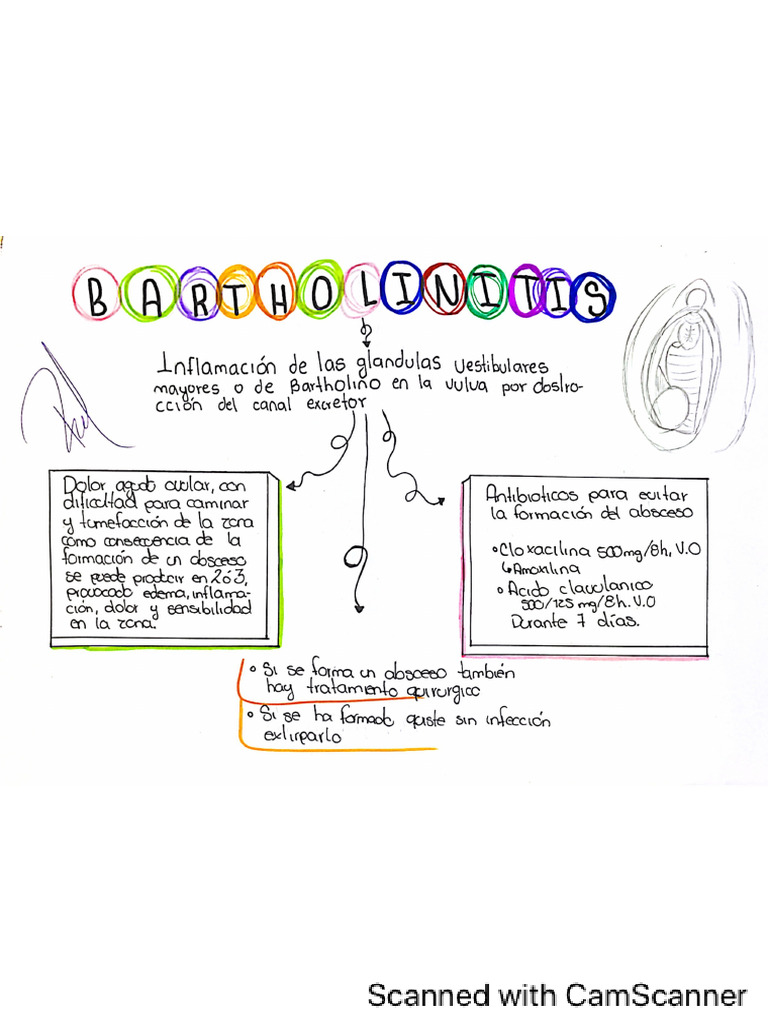 BARTHOLINITIS
Inflamación de las glandulas vestibulares
mayores o de Bartholino en la vulva por dostro-
cción del canal excretor
Dolor agudo ovular, con
dificultad para caminar
y tumefacción de la zona
como consecuencia de la
formación de un absceso
se puede producir en 2ó3,
provocado edema, inflama-
ción, dolor y sensibilidad
en la zona.
Antibioticos para evitar
la formación del absceso
• Cloxacilina 500mg/8h, V.O
↳ Amoxilina
• Acido clavulanico
500/125 mg/8h. V.O
Durante 7 días.
• Si se forma un absceso también
hay tratamiento quirurgico
• Si se ha formado quiste sin infección
extirparlo
Scanned with CamScanner